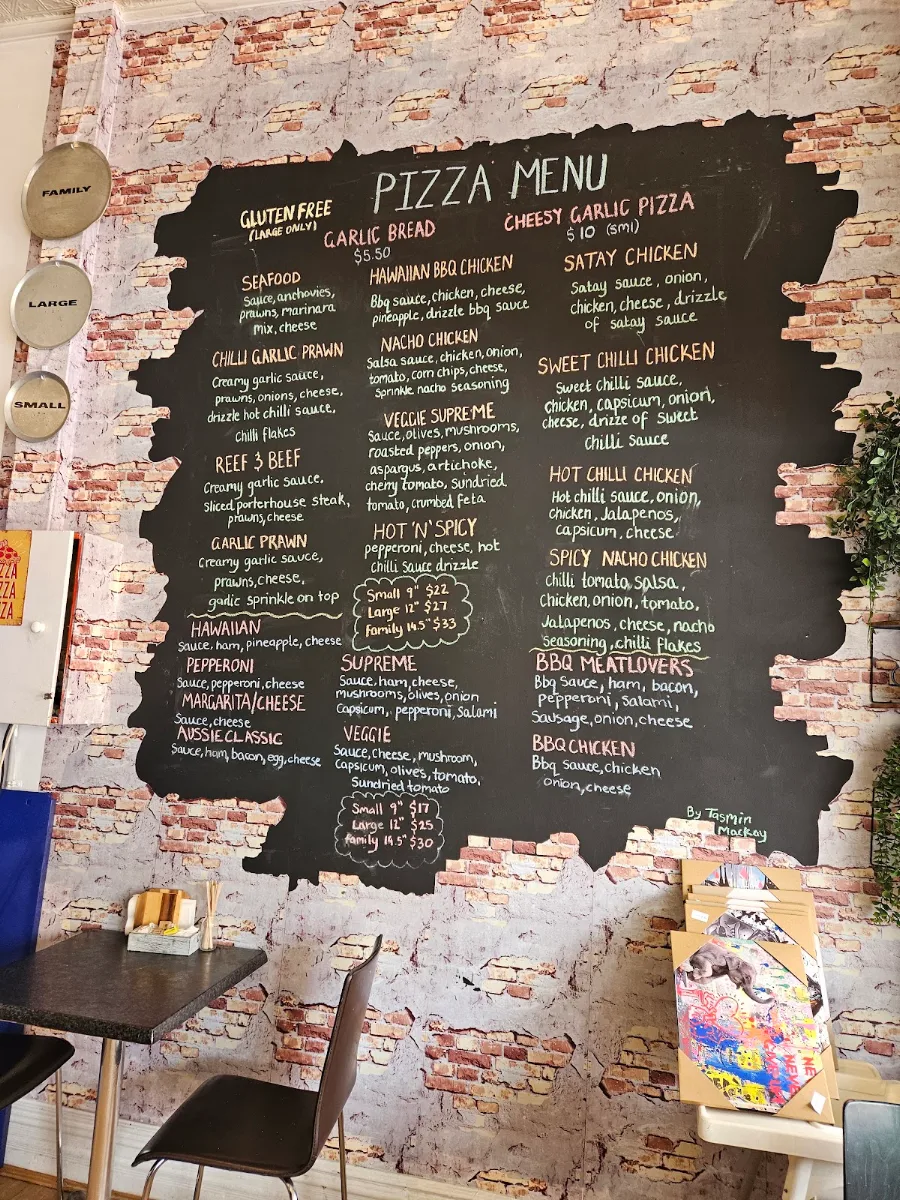 FAMILY
LARGE
SMALL
PIZZA MENU
GLUTEN FREE
(LARGE ONLY)
GARLIC BREAD
$5.50
CHEESY GARLIC PIZZA
$10 (sml)
SEAFOOD
Sauce, anchovies,
prawns, marinara
mix, cheese
CHILLI GARLIC PRAWN
Creamy garlic sauce,
prawns, onions, cheese,
drizzle hot chilli sauce,
chilli flakes
REEF 3 BEEF
Creamy garlic sauce,
sliced porterhouse steak,
prawns, cheese
GARLIC PRAWN
Creamy garlic sauce,
prawns, cheese,
garlic sprinkle on top
HAWAIIAN BBQ CHICKEN
Bbq sauce, chicken, cheese,
pineapple, drizzle bbq sauce
NACHO CHICKEN
Salsa sauce, chicken, onion,
tomato, corn chips, cheese,
Sprinkle nacho Seasoning
VEGGIE SUPREME
Sauce, olives, mushrooms,
roasted peppers, onion,
aspargus, artichoke,
cherry tomato, sundried
tomato, crumbed feta
HOT 'N' SPICY
pepperoni, cheese, hot
chilli sauce drizzle
Small 9" $22
Large 12" $27
Family 14.5" $33
SATAY CHICKEN
Satay sauce, onion,
chicken, cheese, drizzle
of satay sauce
SWEET CHILLI CHICKEN
Sweet chilli sauce,
chicken, capsicum, onion,
cheese, drizze of sweet
chilli sauce
HOT CHILLI CHICKEN
Hot chilli sauce, onion,
chicken, Jalapenos,
capsicum, cheese
SPICY NACHO CHICKEN
chilli tomato, salsa,
chicken, onion, tomato,
Jalapenos, cheese, nacho
Seasoning, chilli flakes
HAWAIIAN
Sauce, ham, pineapple, cheese
PEPPERONI
Sauce, pepperoni, cheese
MARGARITA/CHEESE
Sauce, cheese
AUSSIE CLASSIC
Sauce, ham, bacon, egg, cheese
SUPREME
Sauce, ham, cheese,
mushrooms, olives, onion
Capsicum, pepperoni, Salami
VEGGIE
Sauce, cheese, mushroom,
Capsicum, olives, tomato,
Sundried tomato
Small 9" $17
Large 12" $25
Family 14.5" $30
BBQ MEATLOVERS
Bbq Sauce, ham, bacon,
pepperoni, salami,
Sausage, onion, cheese
BBQ CHICKEN
Bbq sauce, chicken
onion, cheese
By Tasmin
Mackay